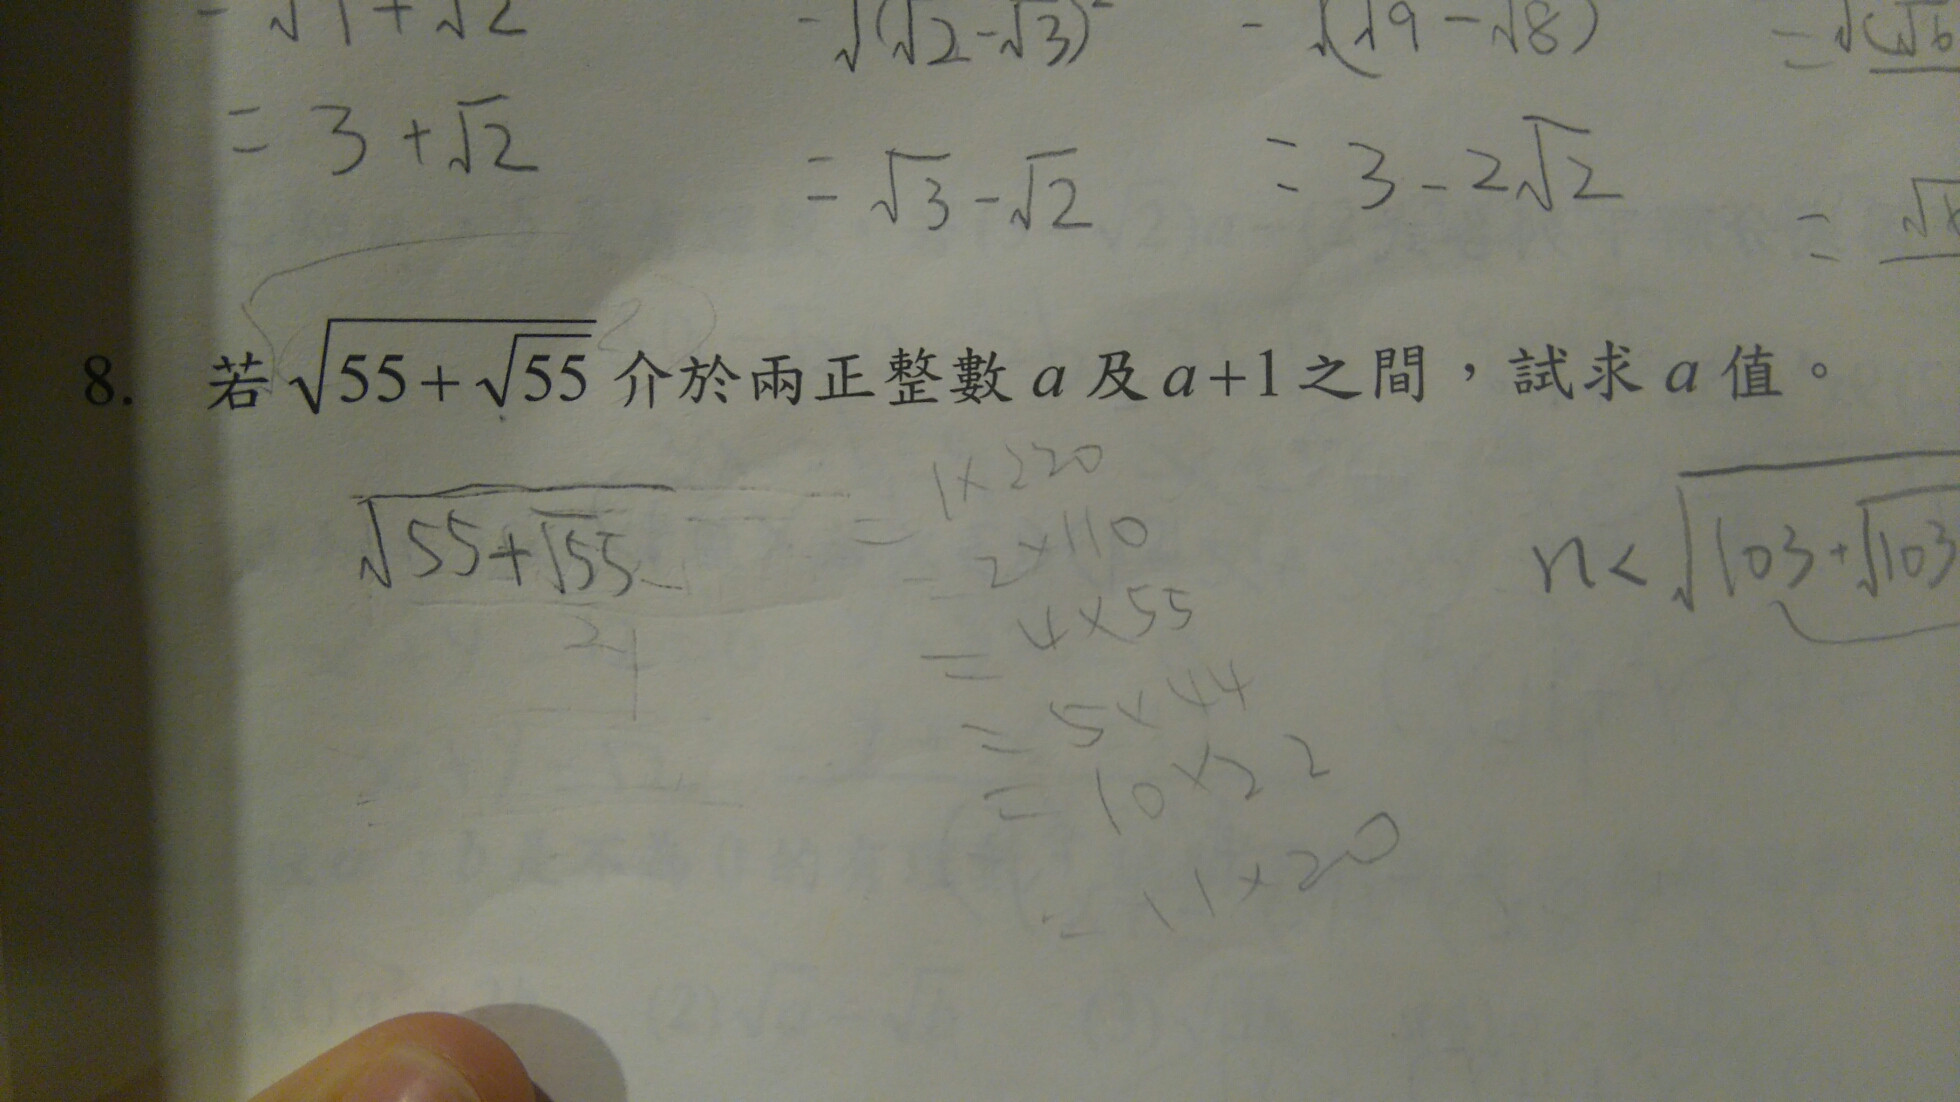 = 3 + √2
= √3 - √2
= 3 - 2√2
8. 若 √(55 + √55) 介於兩正整數 a 及 a+1 之間，試求 a 值。
√(55+√55)
= 1×220
= 2×110
= 4×55
= 5×44
= 10×22
= 11×20
n < √(103+√103